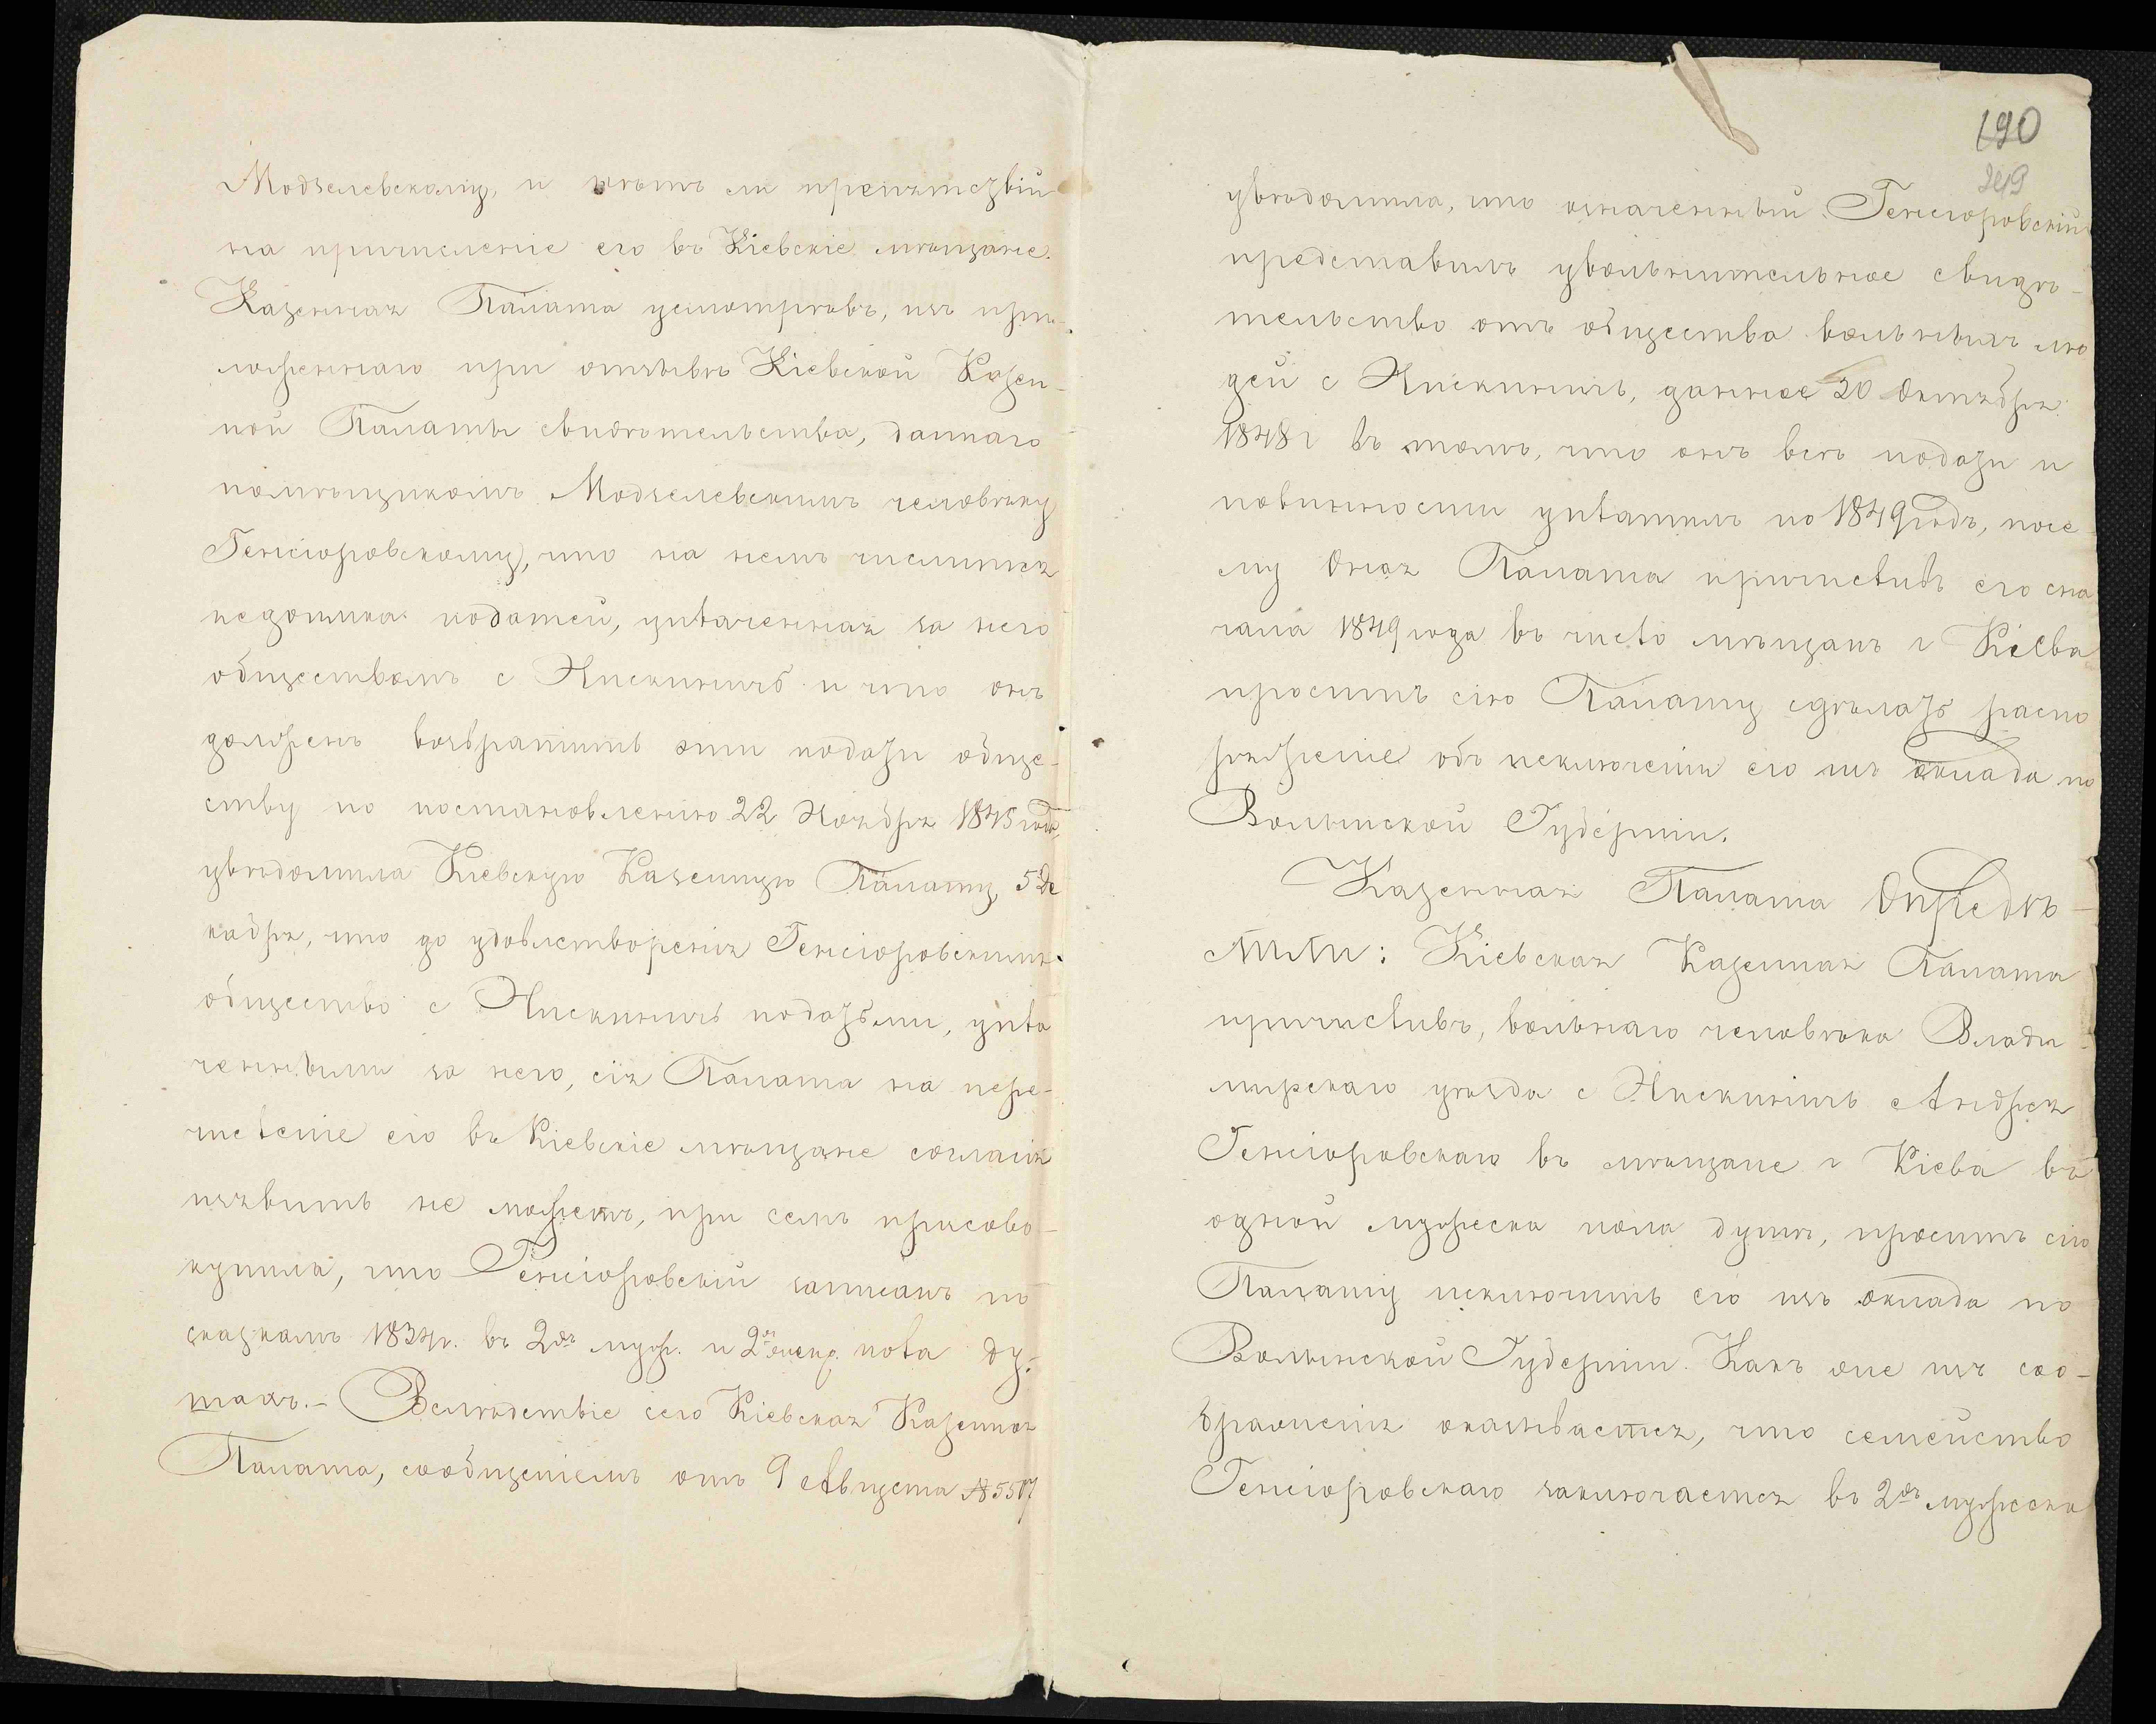 Модзелевскому, и нѣтъ ли препятствій
на причисленіе его въ Кіевскіе мѣщане.
Казенная Палата усмотрѣвъ, изъ при-
ложеннаго при отзывѣ Кіевской Казен-
ной Палаты свидѣтельства, даннаго
помѣщикомъ Модзелевскимъ человѣку
Генсіоровскому, что на немъ числится
недоимка податей, уплаченная за него
обществомъ с Нискиничъ и что онъ
долженъ возвратить эти подати обще-
ству по постановленію 22 Ноября 1845 года,
увѣдомила Кіевскую Казенную Палату, 5 Де
кабря, что до удовлетворенія Генсіоровскимъ
общество с Нискиничъ податьми, упла
ченными за него, сія Палата на пере-
численіе его въ Кіевскіе мѣщане согласія
изъявить не можетъ, при семъ присово-
купила, что Генсіоровскій записанъ по
сказкамъ 1834г. въ 2хъ муж. и 2хъ женск. пола ду-
шахъ.- Вслѣдствіе сего Кіевская Казенная
Палата, сообщеніемъ отъ 9 Августа № 5507
190
249
увѣдомила, что означенный Генсіоровскій
представилъ увольнительное свидѣ-
тельство отъ общества вольныхъ лю
дей с Нискиничъ, данное 20 Октября
1848 г въ томъ, что онъ всѣ подати и
повинности уплатилъ по 1849 годъ, поче
му Оная Палата причисливъ его сна
чала 1849 года въ число мѣщанъ г Кіева
проситъ сію Палату сдѣлать распо
ряженіе объ исключеніи его изъ оклада по
Волынской Губерніи.
Казенная Палата Опредѣ-
лили: Кіевская Казенная Палата
причисливъ, вольнаго человѣка Влади-
мирскаго уѣзда с Нискиничъ Андрея
Генсіоровскаго въ мѣщане г Кіева въ
одной мужеска пола душѣ, проситъ сію
Палату исключить его изъ оклада по
Волынской Губерніи. Какъ же изъ соо-
браженія оказывается, что семейство
Генсіоровскаго заключается въ 2хъ мужеска